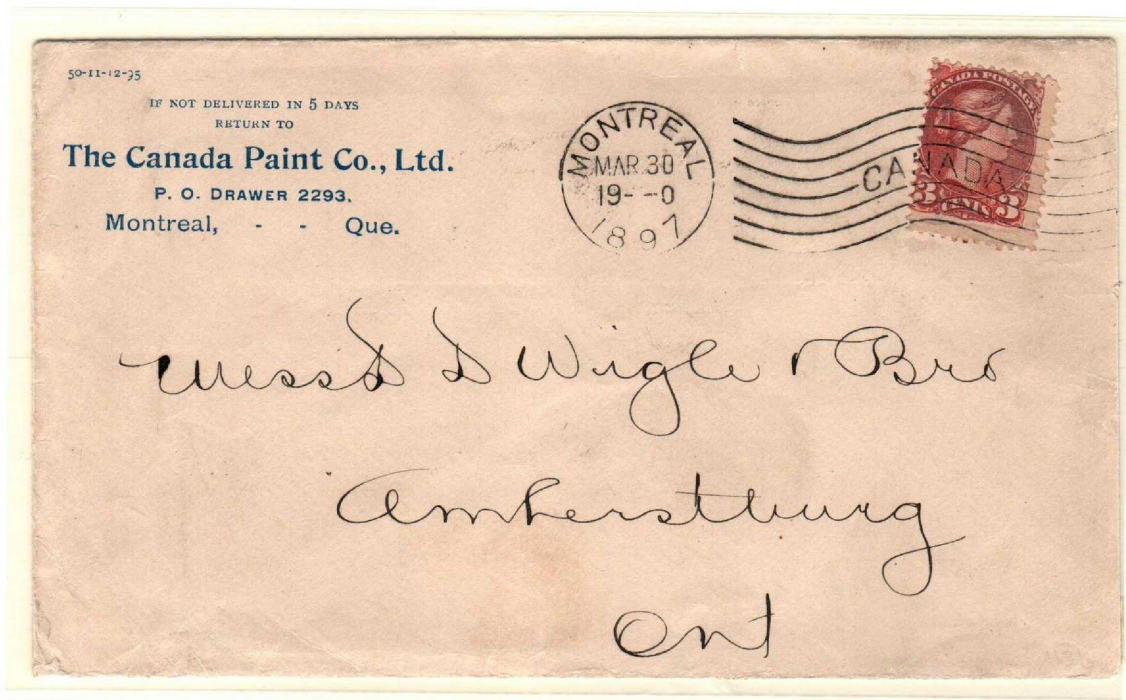 50-11-12-95
IF NOT DELIVERED IN 5 DAYS
RETURN TO
The Canada Paint Co., Ltd.
P. O. DRAWER 2293.
Montreal, - - Que.
MONTREAL
MAR 30
19- -0
1897
CANADA
CANADA POSTAGE
3 CENTS 3
Mess D Wigle & Bro
Amherstburg
Ont